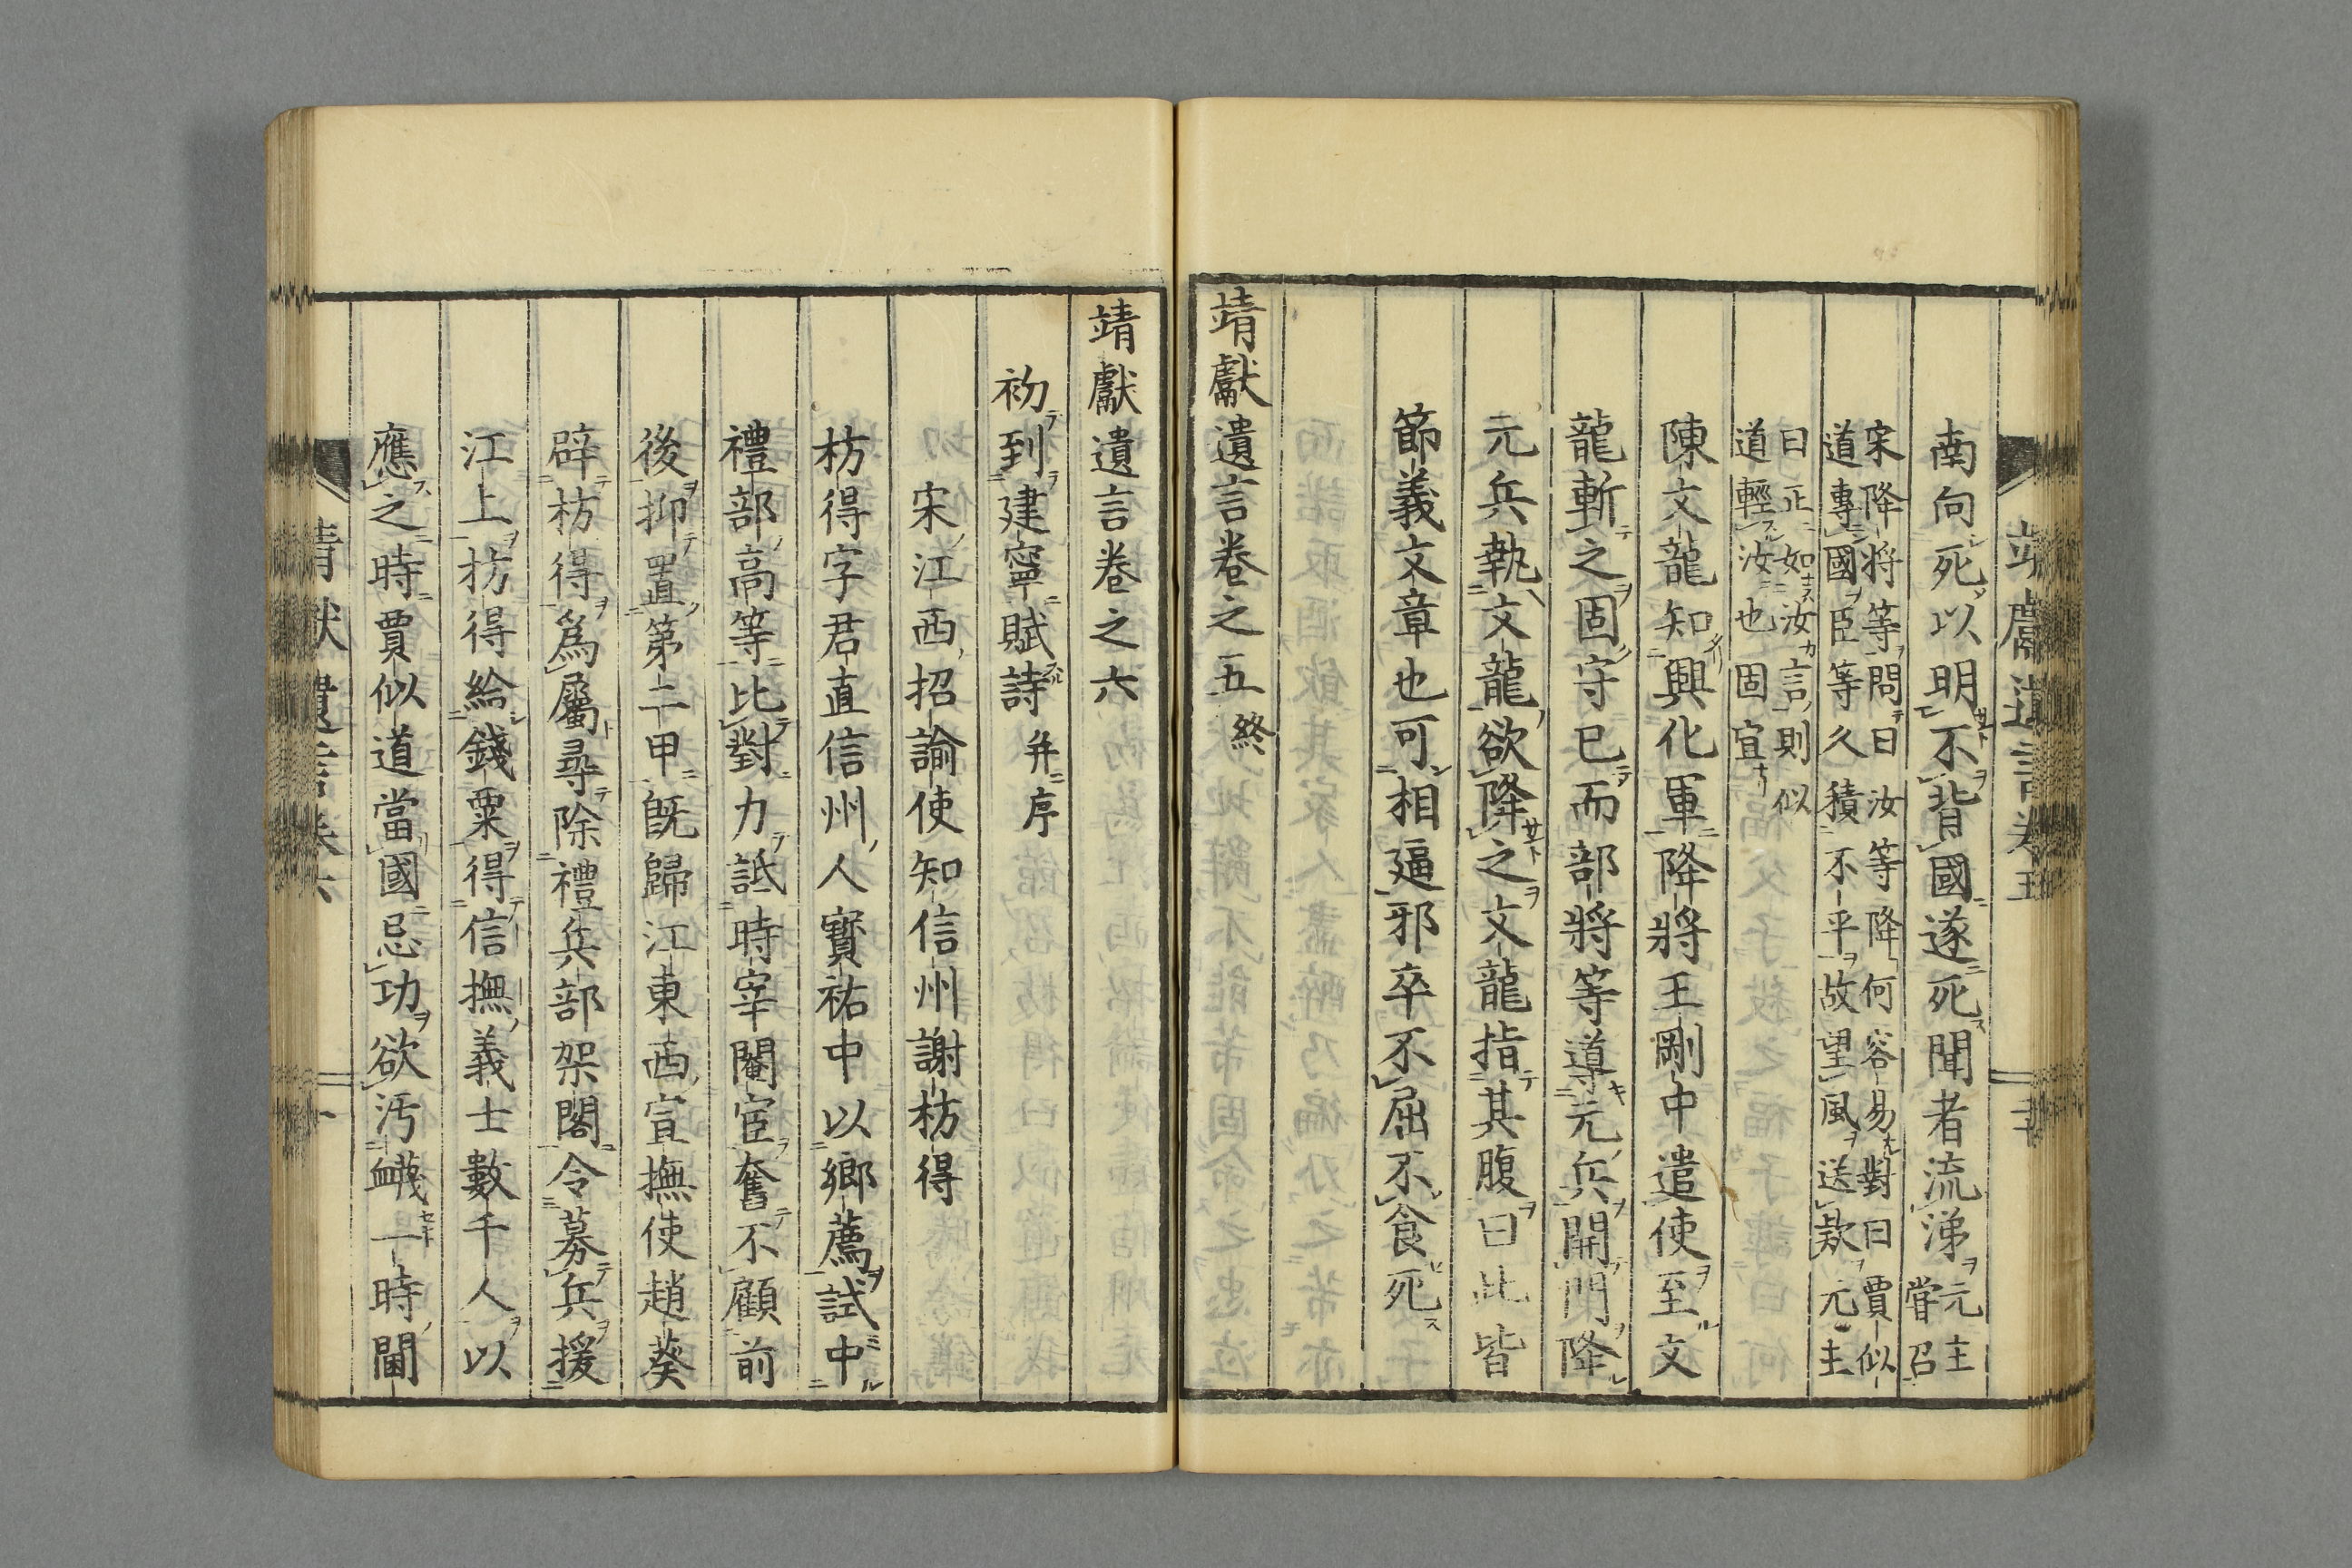 南向死以明不背國遂死聞者流涕元主嘗召
宋降將等問曰汝等降何容易對曰賈似
道專國臣等久積不平故望風送款元主
曰正如汝言則似
道輕汝也固宜
陳文龍知興化軍降將王剛中遣使至文
龍斬之固守已而部將等導元兵開門降
元兵執文龍欲降之文龍指其腹曰此皆
節義文章也可相逼邪卒不屈不食死
靖獻遺言卷之五 終
靖獻遺言卷之六
初到建寧賦詩 并序
宋江西招諭使知信州謝枋得
枋得字君直信州人寶祐中以鄉薦試中
禮部高等比對力詆時宰閹宦奮不顧前
後抑置第二甲既歸江東西宣撫使趙葵
辟枋得爲屬尋除禮兵部架閣令募兵援
江上枋得給錢粟得信撫義士數千人以
應之時賈似道當國忌功欲汚衊一時閫